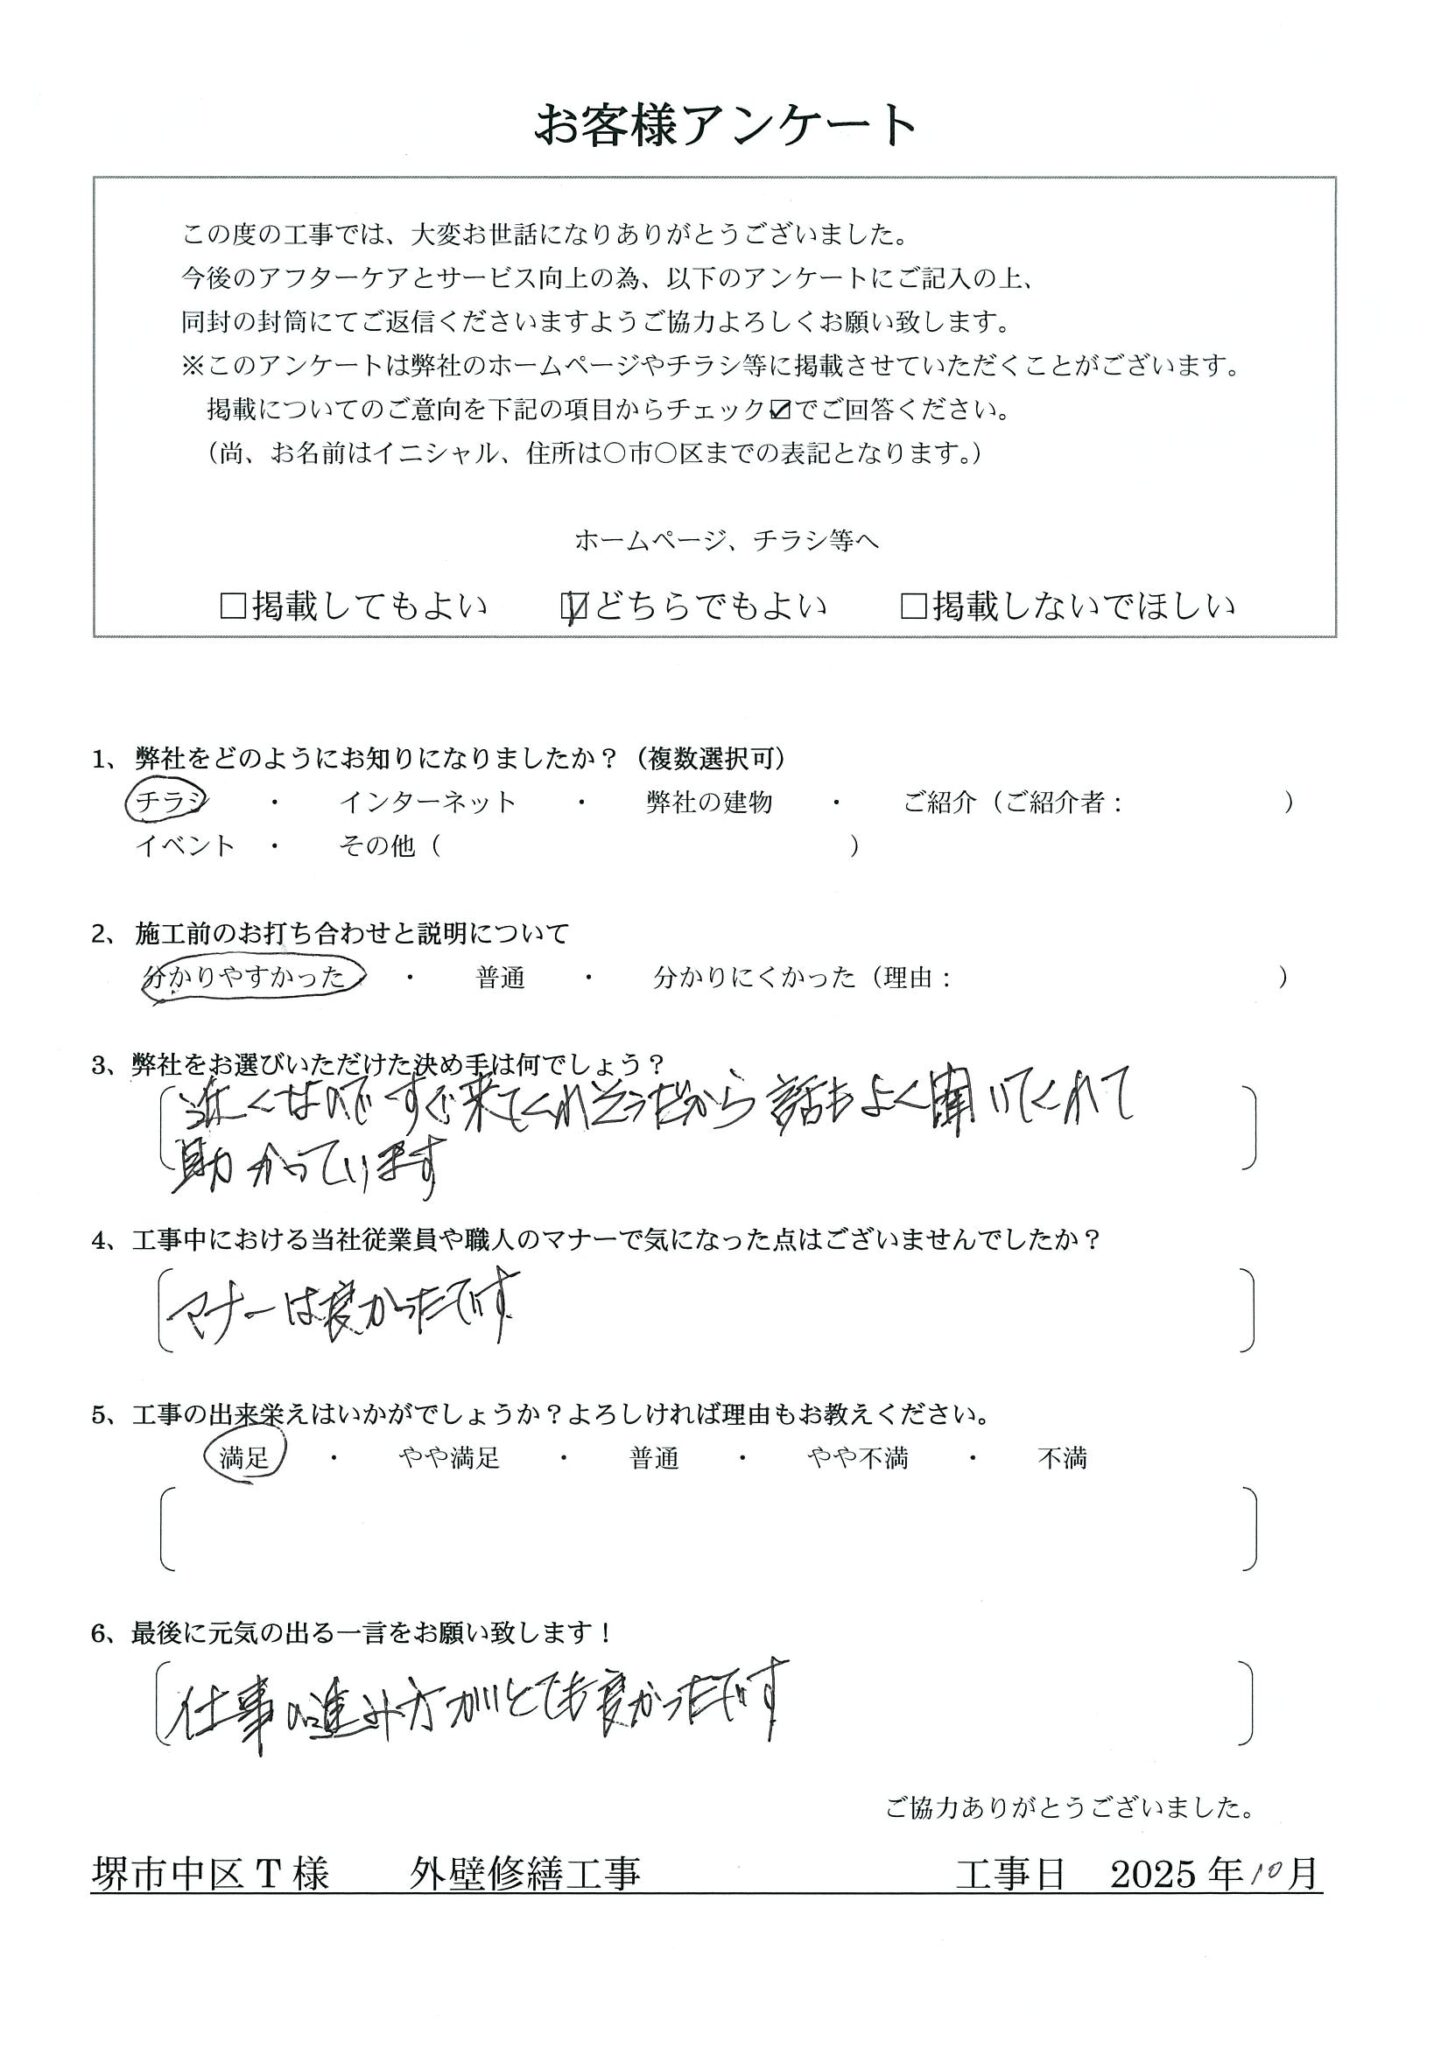 お客様アンケート
この度の工事では、大変お世話になりありがとうございました。
今後のアフターケアとサービス向上の為、以下のアンケートにご記入の上、
同封の封筒にてご返信くださいますようご協力よろしくお願い致します。
※このアンケートは弊社のホームページやチラシ等に掲載させていただくことがございます。
掲載についてのご意向を下記の項目からチェック☑でご回答ください。
（尚、お名前はイニシャル、住所は〇市〇区までの表記となります。）
ホームページ、チラシ等へ
□掲載してもよい ☑どちらでもよい □掲載しないでほしい
1、弊社をどのようにお知りになりましたか？（複数選択可）
チラシ ・ インターネット ・ 弊社の建物 ・ ご紹介（ご紹介者： ）
イベント ・ その他（ ）
2、施工前のお打ち合わせと説明について
分かりやすかった ・ 普通 ・ 分かりにくかった（理由： ）
3、弊社をお選びいただけた決め手は何でしょう？
近くなのですぐ来てくれそうだから 話もよく聞いてくれて
助かっています
4、工事中における当社従業員や職人のマナーで気になった点はございませんでしたか？
マナーは良かったです
5、工事の出来栄えはいかがでしょうか？よろしければ理由もお教えください。
満足 ・ やや満足 ・ 普通 ・ やや不満 ・ 不満
6、最後に元気の出る一言をお願い致します！
仕事の進み方がとても良かったです
ご協力ありがとうございました。
堺市中区 T 様 外壁修繕工事 工事日 2025 年10月